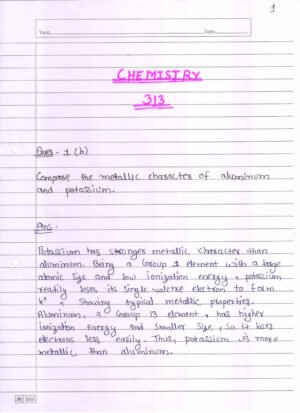 1
Topic
Date
CHEMISTRY
313
Ques - 1 (b)
Compare the metallic character of aluminum
and potassium.
Ans.
Potassium has stronger metallic character than
aluminum. Being a Group 1 element with a large
atomic size and low ionization energy, potassium
readily loses its single valence electron to form
K⁺, showing typical metallic properties.
Aluminum, a Group 13 element, has higher
ionization energy and smaller size, so it loses
electrons less easily. Thus, potassium is more
metallic than aluminum.